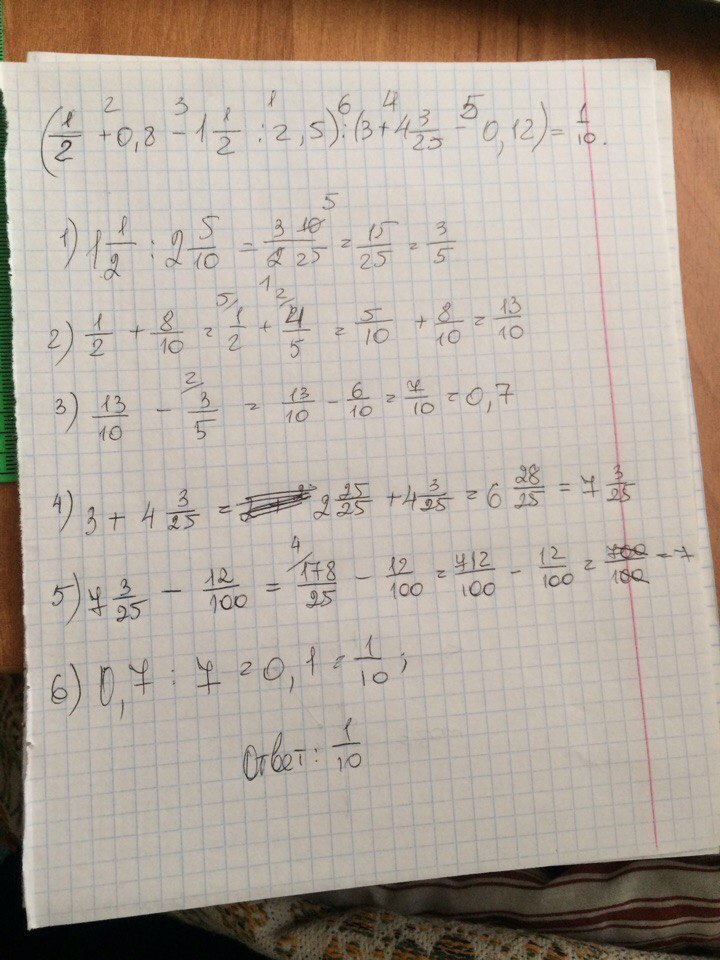 (1/2 + 0,8 - 1 1/2 : 2,5) : (3 + 4 3/25 - 0,12) = 1/10.
1) 1 1/2 : 2 5/10 = 3 10/2 25 = 15/25 = 3/5
2) 1/2 + 8/10 = 1/2 + 4/5 = 5/10 + 8/10 = 13/10
3) 13/10 - 3/5 = 13/10 - 6/10 = 7/10 = 0,7
4) 3 + 4 3/25 = 2 25/25 + 4 3/25 = 6 28/25 = 7 3/25
5) 7 3/25 - 12/100 = 178/25 - 12/100 = 712/100 - 12/100 = 700/100 = 7
6) 0,7 : 7 = 0,1 = 1/10;
Ответ: 1/10